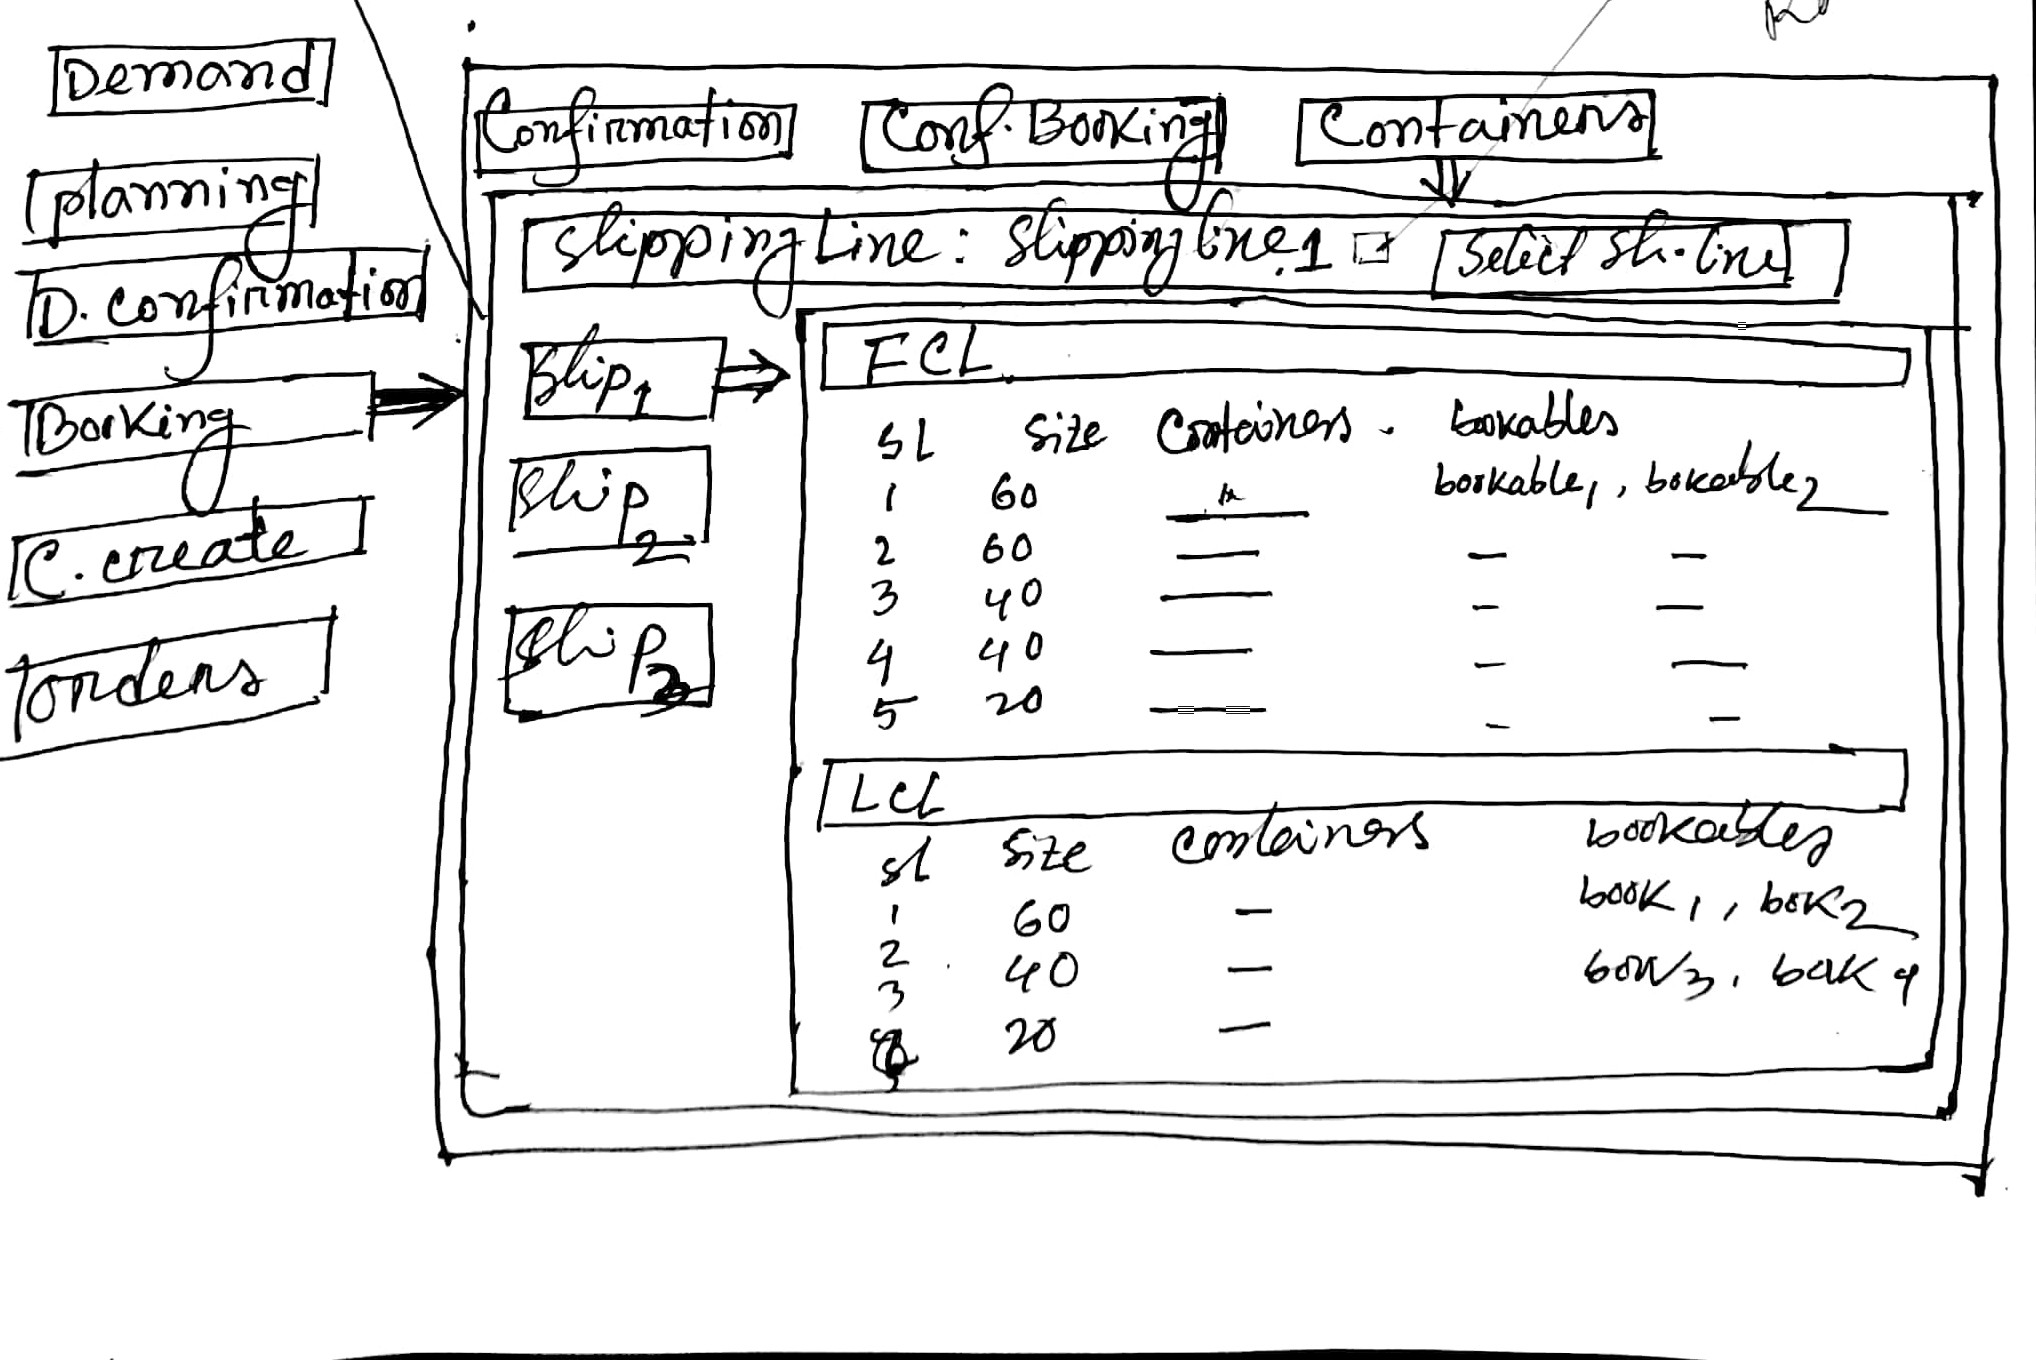 Demand
planning
D. confirmation
Booking
C. create
orders
Confirmation
Conf. Booking
Containers
Shipping Line : Shipping line 1
Select Sh. line
Ship 1
Ship 2
Ship 3
FCL
SL Size Containers. bookables
1 60 bookable1, bokeable2
2 60 — — —
3 40 — — —
4 40 — — —
5 20 — — —
LCL
SL Size Containers bookables
1 60 — book 1, bok2
2 40 — 3. bok 4
3
20 —